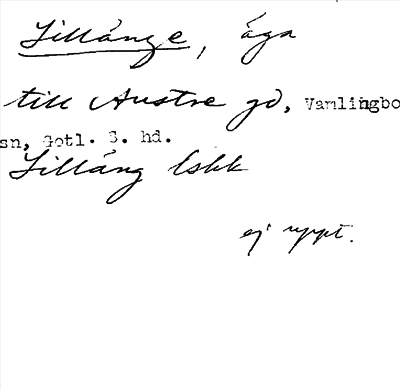 Lillänge, äga
till Austre gd, Vamlingbo
sn, Gotl. S. hd.
Lilläng lskk
ej uppt.